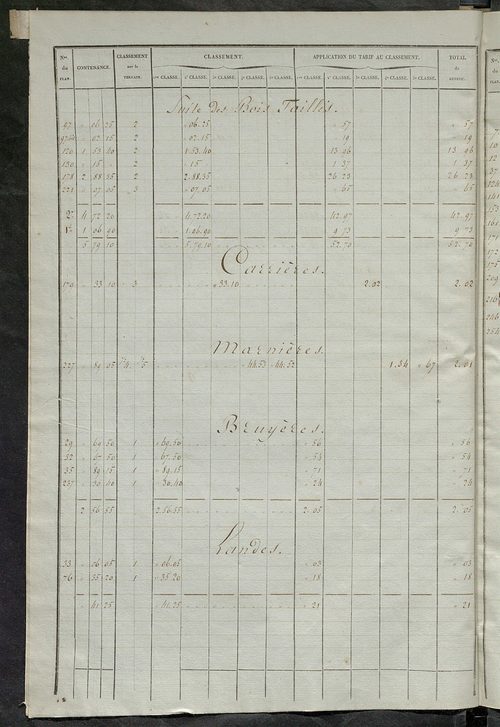 Nos. du PLAN. CONTENANCE. CLASSEMENT sur le TERRAIN. CLASSEMENT. APPLICATION DU TARIF AU CLASSEMENT. TOTAL du REVENU.
1ère CLASSE. 2e CLASSE. 3e CLASSE. 4e CLASSE. 5e CLASSE. 1ère CLASSE. 2e CLASSE. 3e CLASSE. 4e CLASSE. 5e CLASSE.
Suite des Bois Taillis.
97 06 25 2 06.25 57 57
02 15 2 02.15 19 19
120 1 53 40 2 1.53.40 13 96 13 96
130 15 2 15 1 37 1 37
178 2 88 35 2 2.88.35 26 23 26 23
221 07 05 3 07.05 65 65
2e 4 72 20 4.72.20 42.97 42.97
1e 1 06 90 1.06.90 9 73 9 73
5 79 10 5.79.10 52.70 52.70
Carrières.
170 33 10 3 33.10 2.02 2.02
Marnières.
227 89 05 44.53 44.52 1.34 67 2.01
Bruyères.
29 69 50 1 69.50 56 56
32 67 50 1 67.50 54 54
35 89 15 1 89.15 71 71
237 30 40 1 30.40 24 24
2 56 55 2.56.55 2.05 2.05
Landes.
33 06 05 1 06.05 03 03
76 35 20 1 35.20 18 18
41 25 41.25 21 21